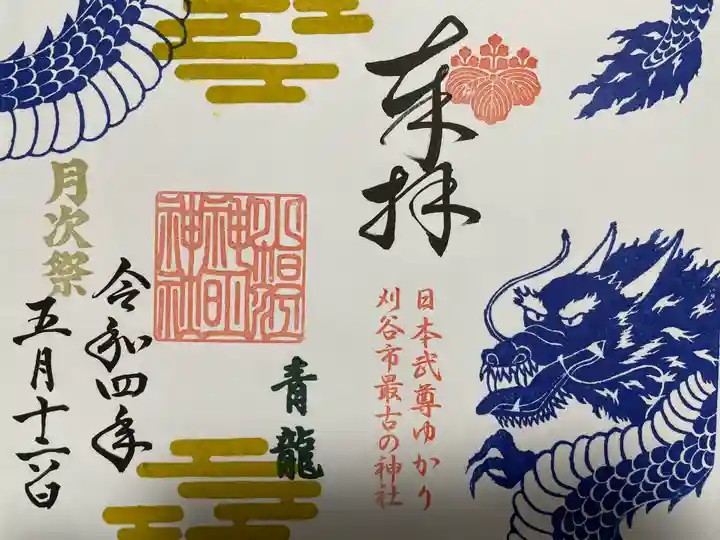 奉拝
日本武尊ゆかり
刈谷市最古の神社
青龍
小垣江
神明
神社
月次祭
令和四年
五月十六日